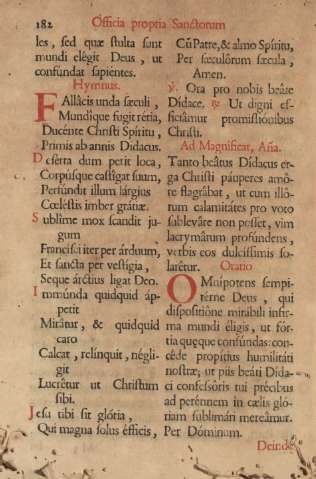 182 Officia propria Sanctorum
les, sed quæ stulta sunt
mundi elégit Deus, ut
confúndat sapientes.
Hymnus.
FAllácis unda sæculi,
Mundique fugit rétia,
Ducénte Christi Spíritu,
Primis ab annis Didacus.
Deserta dum petit loca,
Corpusque castigat suum,
Perfúndit illum lárgius
Cœlestis imber grátiæ.
Sublime mox scandit ju-
gum
Francisci iter per árduum,
Et sancta per vestígia,
Seque árctius ligat Deo.
Immúnda quidquid áp-
petit
Mirátur, & quidquid
caro
Calcat, relínquit, négli-
git
Lucrétur ut Christum
sibi.
Jesu tibi sit glória,
Qui magna solus éfficis,
Cũ Patre, & almo Spíritu,
Per sæculórum sæcula,
Amen.
℣. Ora pro nobis beáte
Dídace. ℟. Ut digni ef-
ficiámur promissiónibus
Christi.
Ad Magnificat, Aña.
Tanto beátus Dídacus er-
ga Christi páuperes amó-
re flagrábat, ut cum illó-
rum calamitátes pro voto
sublevare non posset, vim
lacrymárum profúndens,
verbis eos dulcissimis so-
larétur.
Oratio
OMnípotens sempi-
térne Deus, qui
dispositióne mirábili infír-
ma mundi éligis, ut fór-
tia quæque confúndas: con-
céde propítius humilitáti
nostræ; ut piis beáti Dída-
ci confessóris tui précibus
ad perénnem in cælis gló-
riam sublimári mereámur.
Per Dóminum.
Deinde